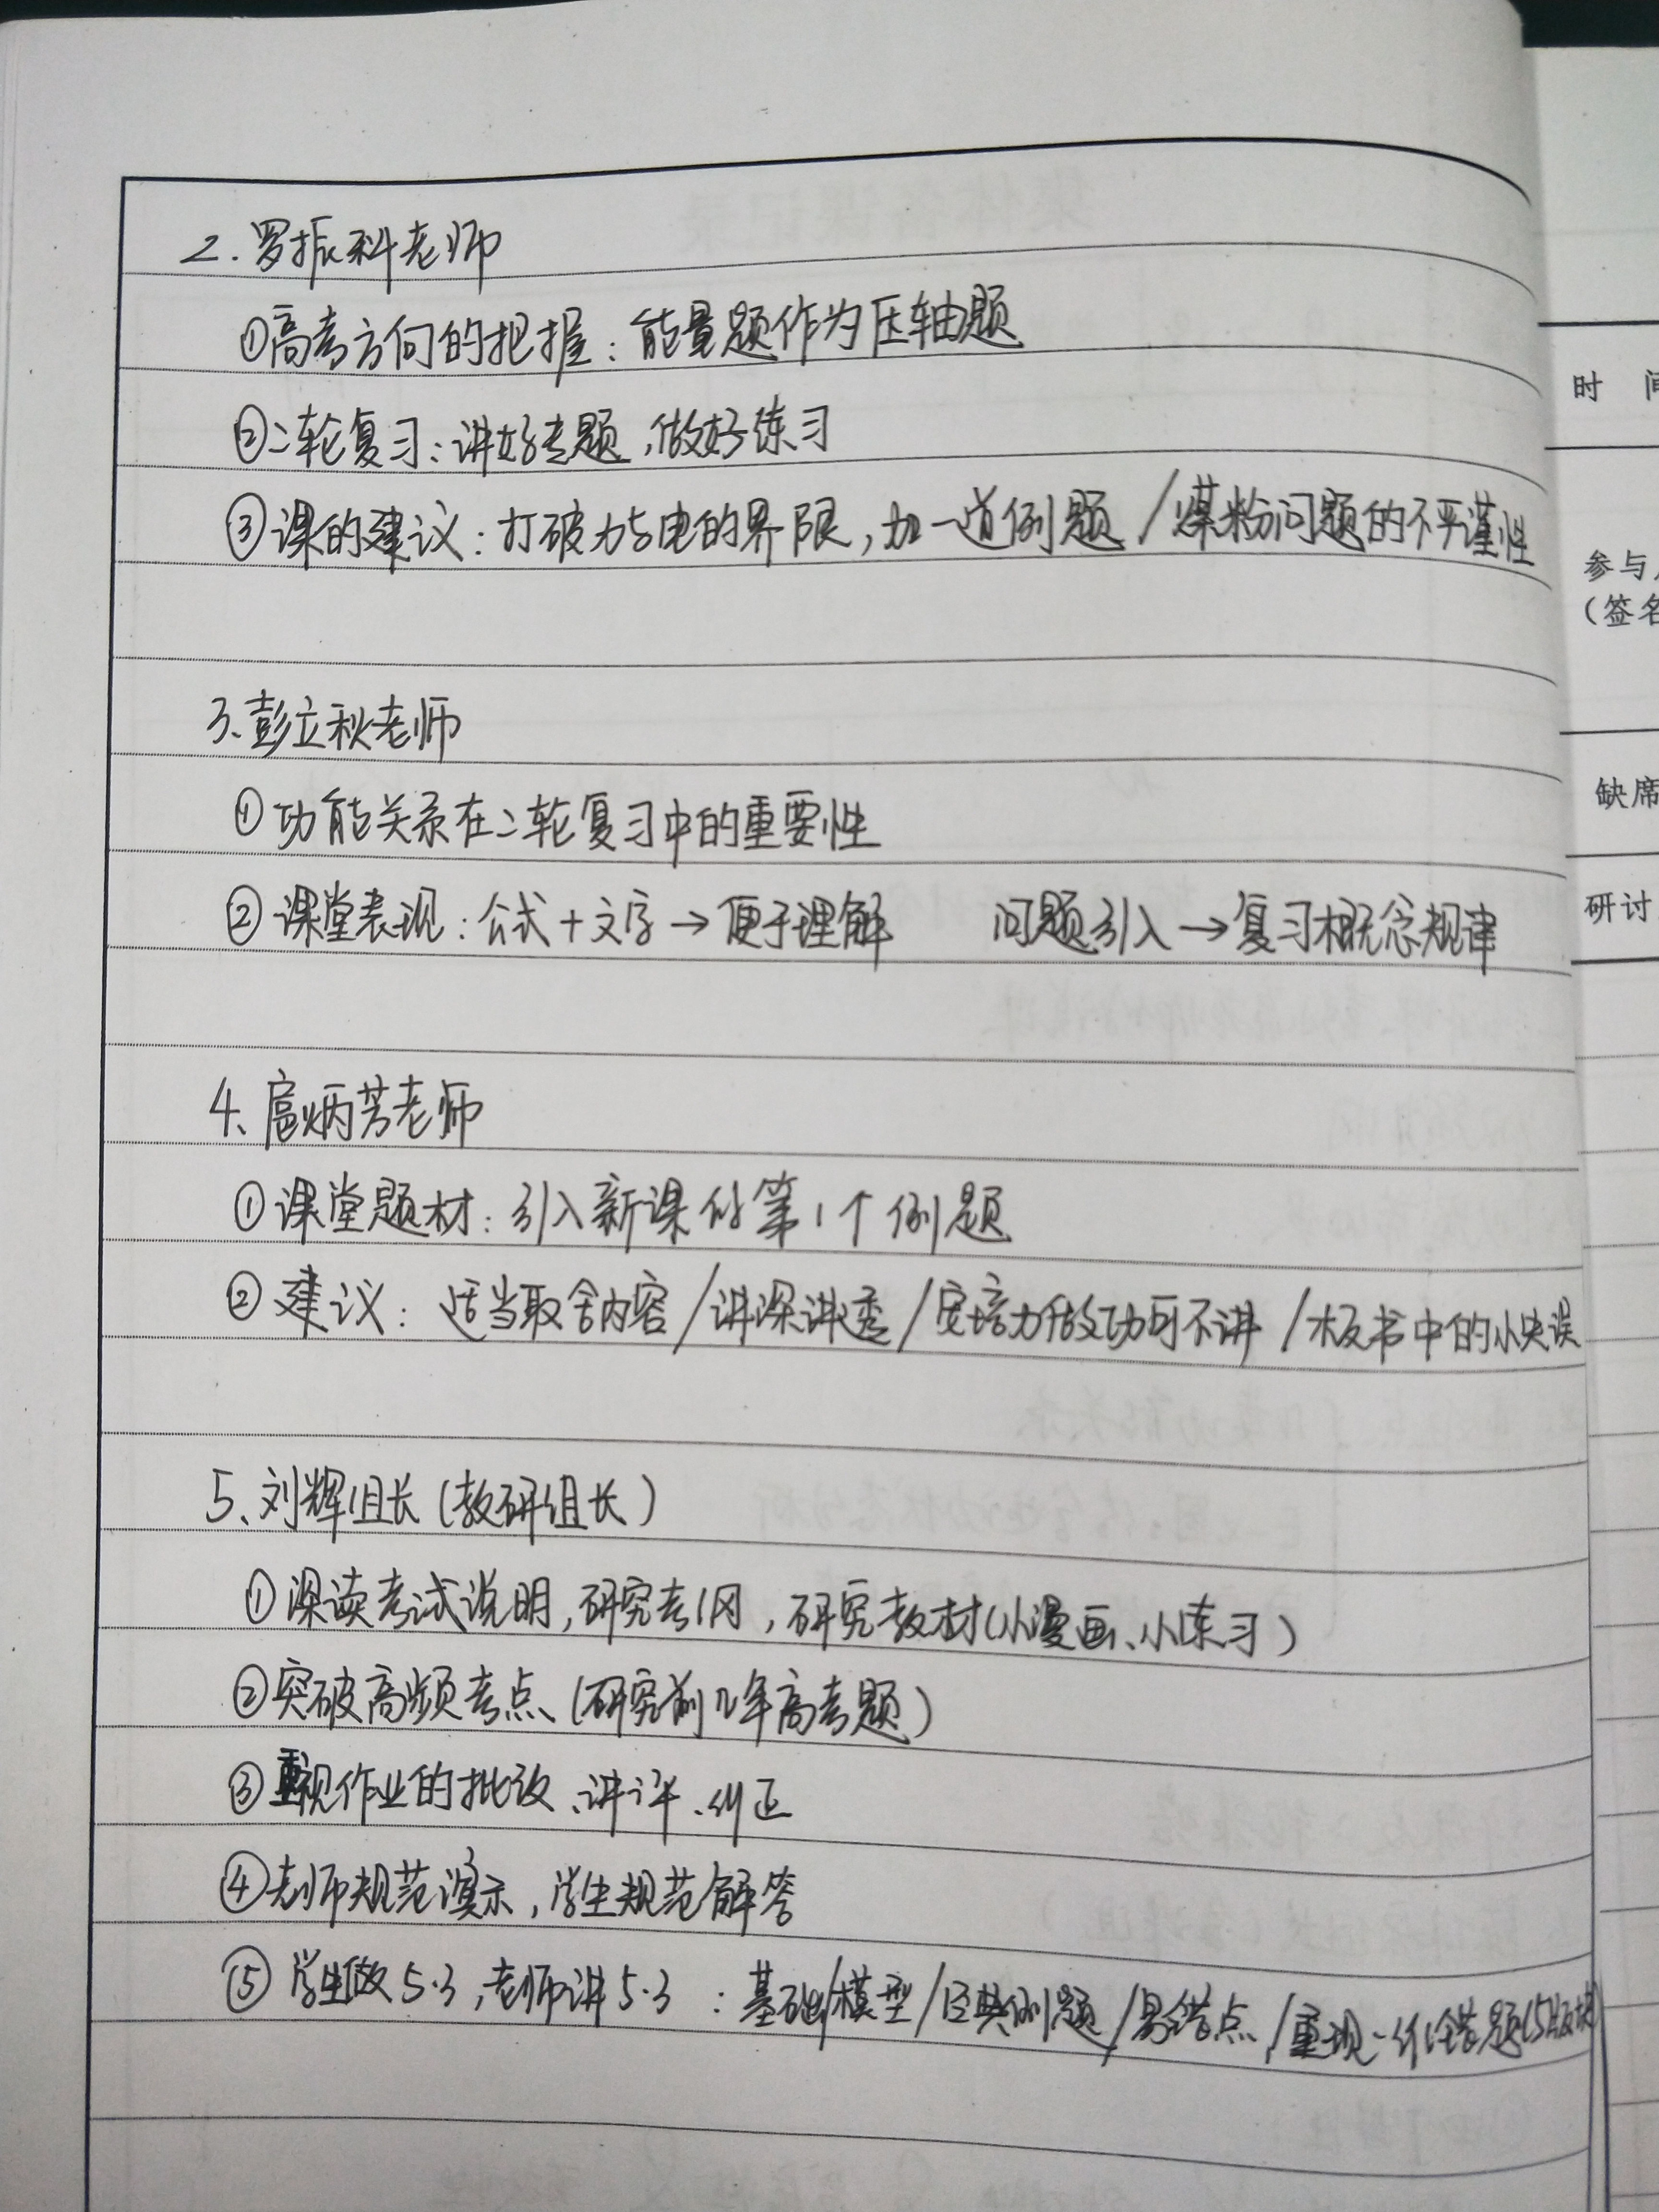 2. 罗振科老师
①高考方向的把握：能量题作为压轴题
②二轮复习：讲好专题，做好练习
③课的建议：打破力与电的界限，加一道例题/煤粉问题的不严谨性
3、彭立秋老师
①功能关系在二轮复习中的重要性
②课堂表现：公式+文字→便于理解 问题引入→复习概念规律
4、扈炳芳老师
①课堂题材：引入新课的第1个例题
②建议：适当取舍内容/讲深讲透/安培力做功可不讲/板书中的小失误
5、刘辉组长（教研组长）
①深读考试说明，研究考纲，研究教材（小漫画、小练习）
②突破高频考点（研究前几年高考题）
③重视作业的批改、讲评、纠正
④老师规范演示，学生规范解答
⑤学生做5·3，老师讲5·3：基础/模型/经典例题/易错点/重现一例错题（5版块）
时 间
参与
（签名
缺席
研讨